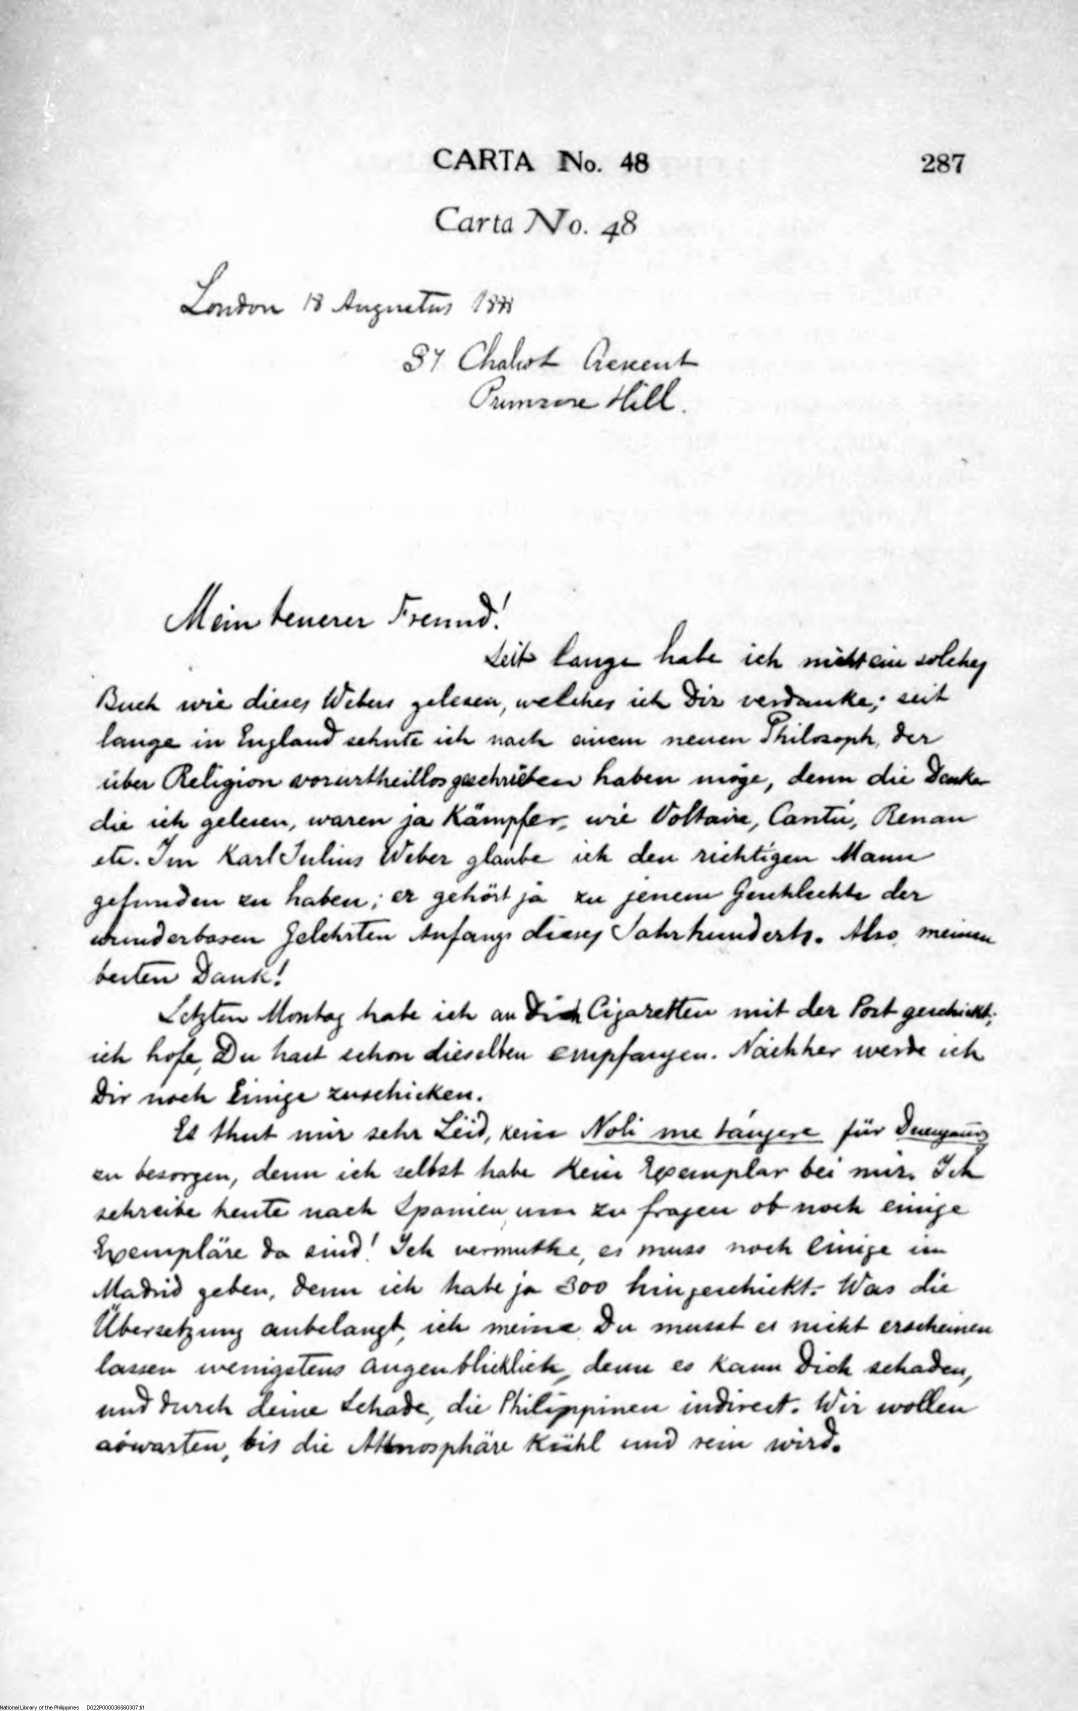 CARTA No. 48
287
Carta No. 48
London 18 Augustus 1888
37 Chalcot Crescent
Primrose Hill.
Mein teuerer Freund!
Seit lange habe ich nicht ein solches
Buch wie dieses Webers gelesen, welches ich Dir verdanke; seit
lange in England sehnte ich nach einem neuen Philosoph, der
über Religion vorurtheillos geschrieben haben möge, denn die Denker
die ich gelesen, waren ja Kämpfer, wie Voltaire, Cantú, Renan
etc. Im Karl Julius Weber glaube ich den richtigen Mann
gefunden zu haben; er gehört ja zu jenem Geschlechte der
wunderbaren Gelehrten Anfangs dieses Jahrhunderts. Also meinen
besten Dank!
Letzten Montag habe ich an Dich Cigaretten mit der Post geschickt;
ich hofe, Du hast schon dieselben empfangen. Nachher werde ich
Dir noch Einige zuschicken.
Es thut mir sehr Leid, kein Noli me tángere für
zu besorgen, denn ich selbst habe kein Exemplar bei mir. Ich
schreibe heute nach Spanien um zu fragen ob noch einige
Exempläre da sind! Ich vermuthe, es muss noch Einige im
Madrid geben, denn ich habe ja 300 hingeschickt. Was die
Übersetzung anbelangt, ich meine Du musst es nicht erscheinen
lassen wenigstens augenblicklich, denn es kann Dich schaden,
und durch deine Schade, die Philippinen indirect. Wir wollen
abwarten, bis die Atmosphäre Kühl und rein wird.
National Library of the Philippines